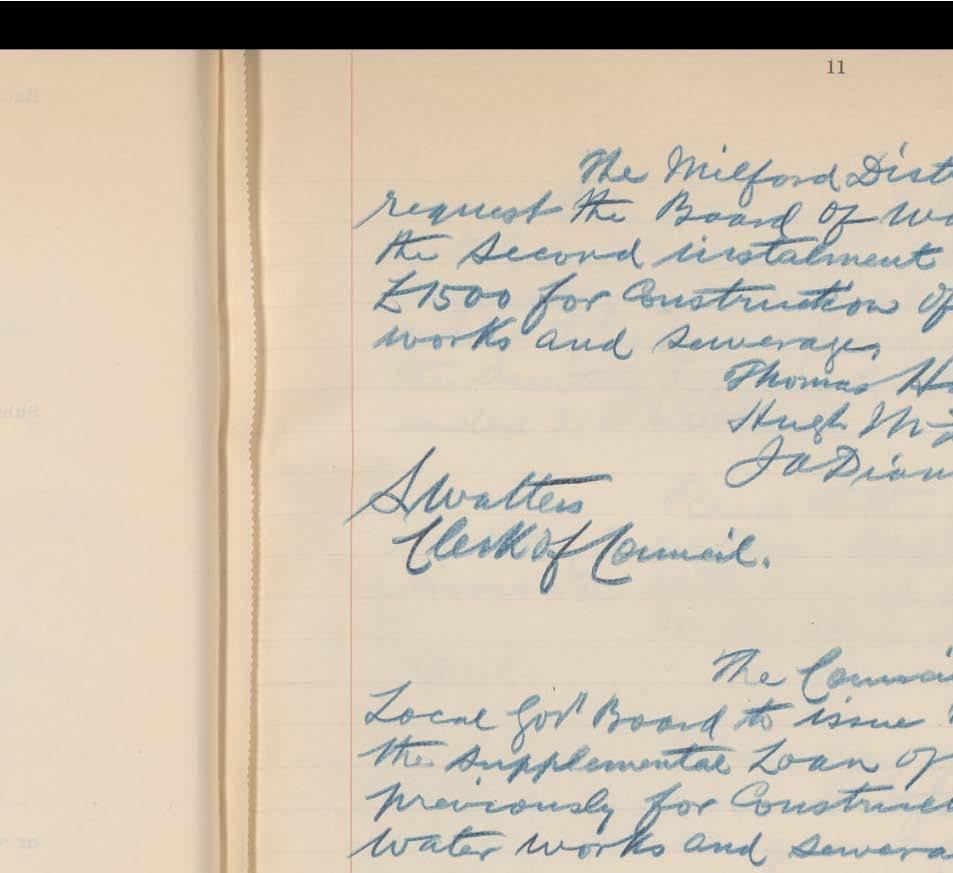 11
The Milford Dist
request the Board of Wo
the Second instalment
£1500 for Construction of
works and sewerage,
Thomas H
Hugh Mc
S Watters
Clerk of Council.
The Counci
Local Govt Board to issue
the supplemental Loan of
previously for Construc
water works and sewera